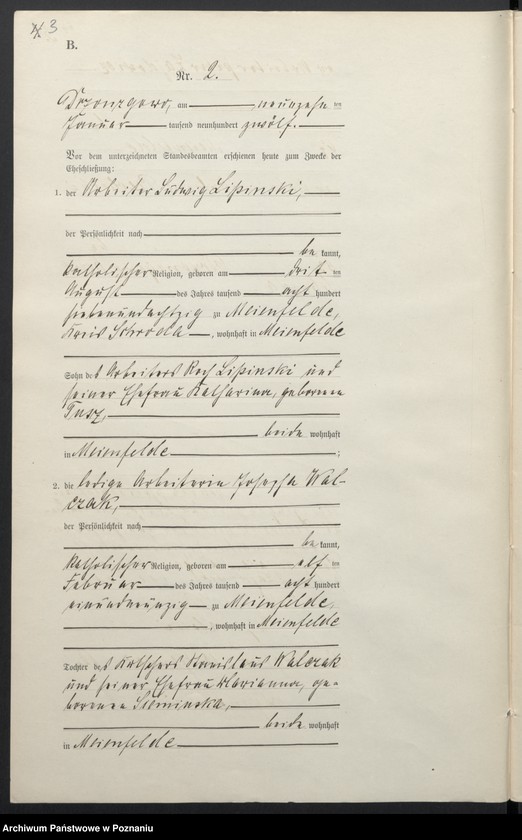 3
B.
Nr. 2.
am neunzehn ten
Januar tausend neunhundert zwölf.
Vor dem unterzeichneten Standesbeamten erschienen heute zum Zwecke der
Eheschließung:
1. der Arbeiter Ludwig Lipinski,
der Persönlichkeit nach
be kannt,
katholischer Religion, geboren am drit ten
August des Jahres tausend acht hundert
siebenundachtzig zu Meienfelde,
Kreis Schroda, wohnhaft in Meienfelde
Sohn des Arbeiters Lipinski und
seiner Ehefrau Katharina, geborenen
beide wohnhaft
in Meienfelde ;
2. die ledige Arbeiterin Josepha Wal-
czak,
der Persönlichkeit nach
be kannt,
katholischer Religion, geboren am elf ten
Februar des Jahres tausend acht hundert
einundneunzig zu Meienfelde,
, wohnhaft in Meienfelde
Tochter des Stanislaus Walczak
und seiner Ehefrau Marianna, ge-
borenen
beide wohnhaft
in Meienfelde
Archiwum Państwowe w Poznaniu